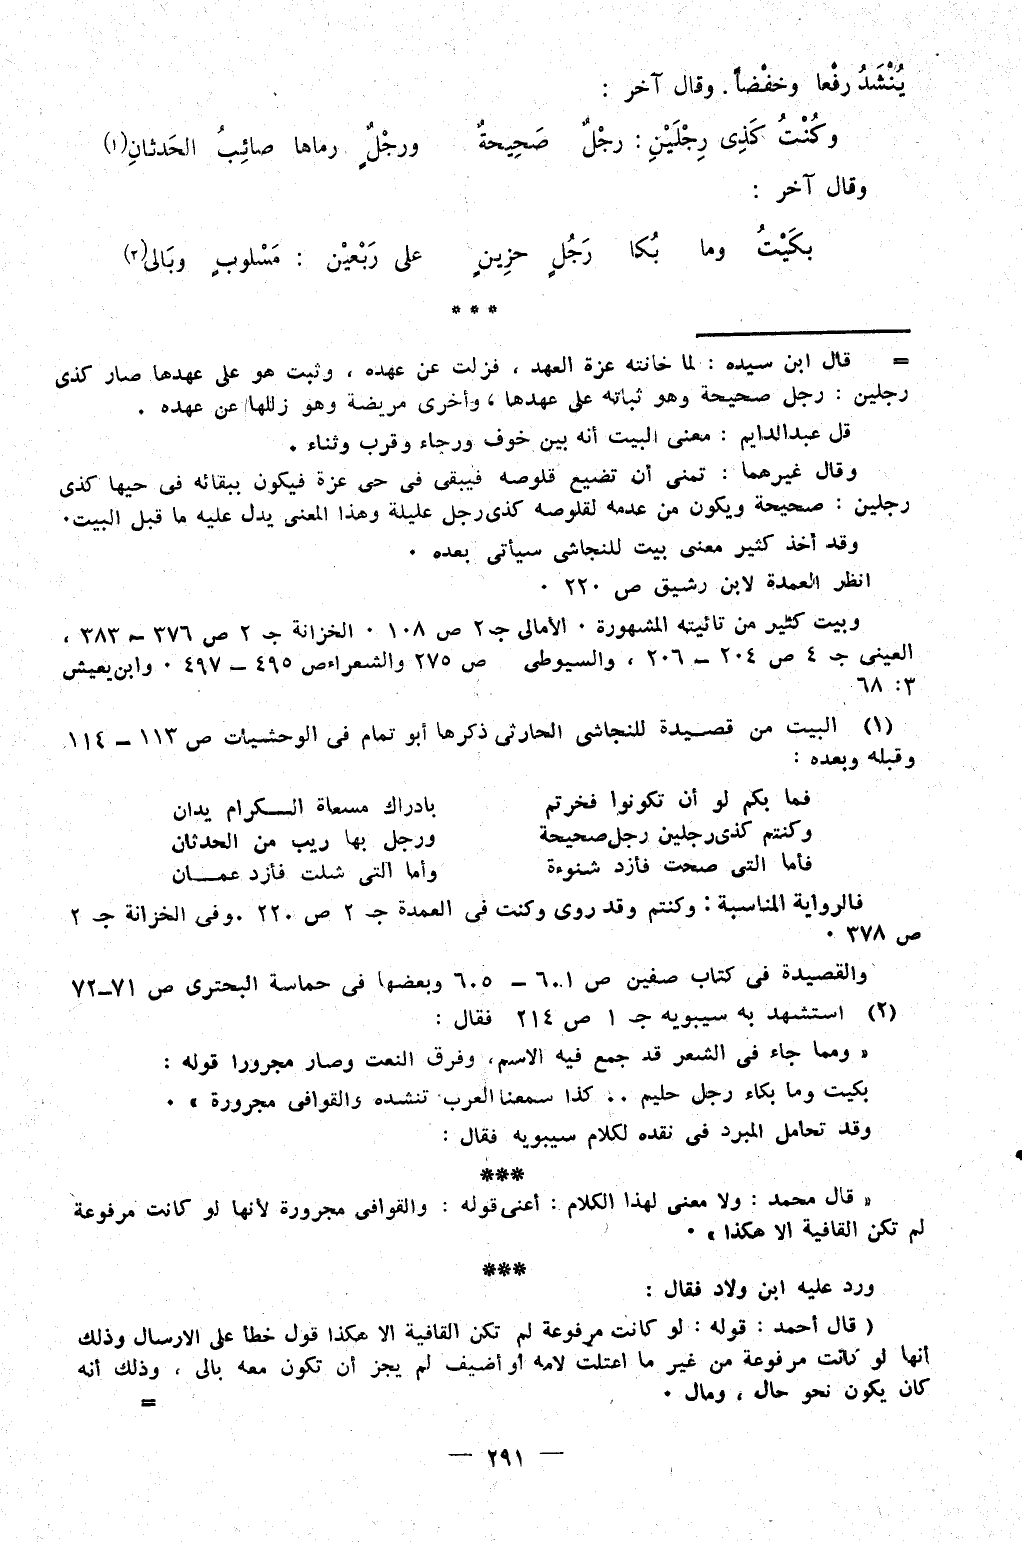 يُنْشَدُ رفْعا وخفْضاً . وقال آخر :
وكُنْتُ كَذِى رِجْلَيْنِ : رجْلٌ صَحِيحةٌ ورجْلٌ رماها صائِبُ الحَدثانِ(١)
وقال آخر :
بكَيْتُ وما بُكا رَجُلٍ حزِينٍ على رَبْعيْن : مَسْلوبٍ وبَالى(٢)
* * *
= قال ابن سيده : لما خانته عزة العهد ، فزلت عن عهده ، وثبت هو على عهدها صار كذى
رجلين : رجل صحيحة وهو ثباته على عهدها ، وأخرى مريضة وهو زللها عن عهده ٠
قل عبدالدايم : معنى البيت أنه بين خوف ورجاء وقرب وثناء ٠
وقال غيرهما : تمنى أن تضيع قلوصه فيبقى فى حى عزة فيكون ببقائه فى حيها كذى
رجلين : صحيحة ويكون من عدمه لقلوصه كذى رجل عليلة وهذا المعنى يدل عليه ما قبل البيت٠
وقد أخذ كثير معنى بيت للنجاشى سيأتى بعده ٠
انظر العمدة لابن رشيق ص ٢٢٠ ٠
وبيت كثير من تائيته المشهورة ٠ الأمالى جـ٢ ص ١٠٨ ٠ الخزانة جـ ٢ ص ٣٧٦ – ٣٨٣ ،
العينى جـ ٤ ص ٢٠٤ – ٢٠٦ ، والسيوطى ص ٢٧٥ والشعراءص ٤٩٥ – ٤٩٧ ٠ وابن يعيش
٣: ٦٨
(١) البيت من قصيدة للنجاشى الحارثى ذكرها أبو تمام فى الوحشيات ص ١١٣ – ١١٤
وقبله وبعده :
فما بكم لو أن تكونوا فخرتم بادراك مسعاة الكرام يدان
وكنتم كذى رجلين رجل صحيحة ورجل بها ريب من الحدثان
فأما التى صحت فأزد شنوءة وأما التى شلت فأزد عمان
فالرواية المناسبة : وكنتم وقد روى وكنت فى العمدة جـ ٢ ص ٢٢٠ ٠وفى الخزانة جـ ٢
ص ٣٧٨ ٠
والقصيدة فى كتاب صفين ص ٦٠١ – ٦٠٥ وبعضها فى حماسة البحترى ص ٧١–٧٢
(٢) استشهد به سيبويه جـ ١ ص ٢١٤ فقال :
« ومما جاء فى الشعر قد جمع فيه الاسم، وفرق النعت وصار مجرورا قوله :
بكيت وما بكاء رجل حليم ٠٠ كذا سمعنا العرب تنشده والقوافى مجرورة » ٠
وقد تحامل المبرد فى نقده لكلام سيبويه فقال :
***
« قال محمد : ولا معنى لهذا الكلام : أعنى قوله : والقوافى مجرورة لأنها لو كانت مرفوعة
لم تكن القافية الا هكذا » ٠
***
ورد عليه ابن ولاد فقال :
( قال أحمد : قوله : لو كانت مرفوعة لم تكن القافية الا هكذا قول خطأ على الارسال وذلك
أنها لو كانت مرفوعة من غير ما اعتلت لامه أو أضيف لم يجز أن تكون معه بالى ، وذلك أنه
كان يكون نحو حال ، ومال ٠
=
— ٢٩١ —